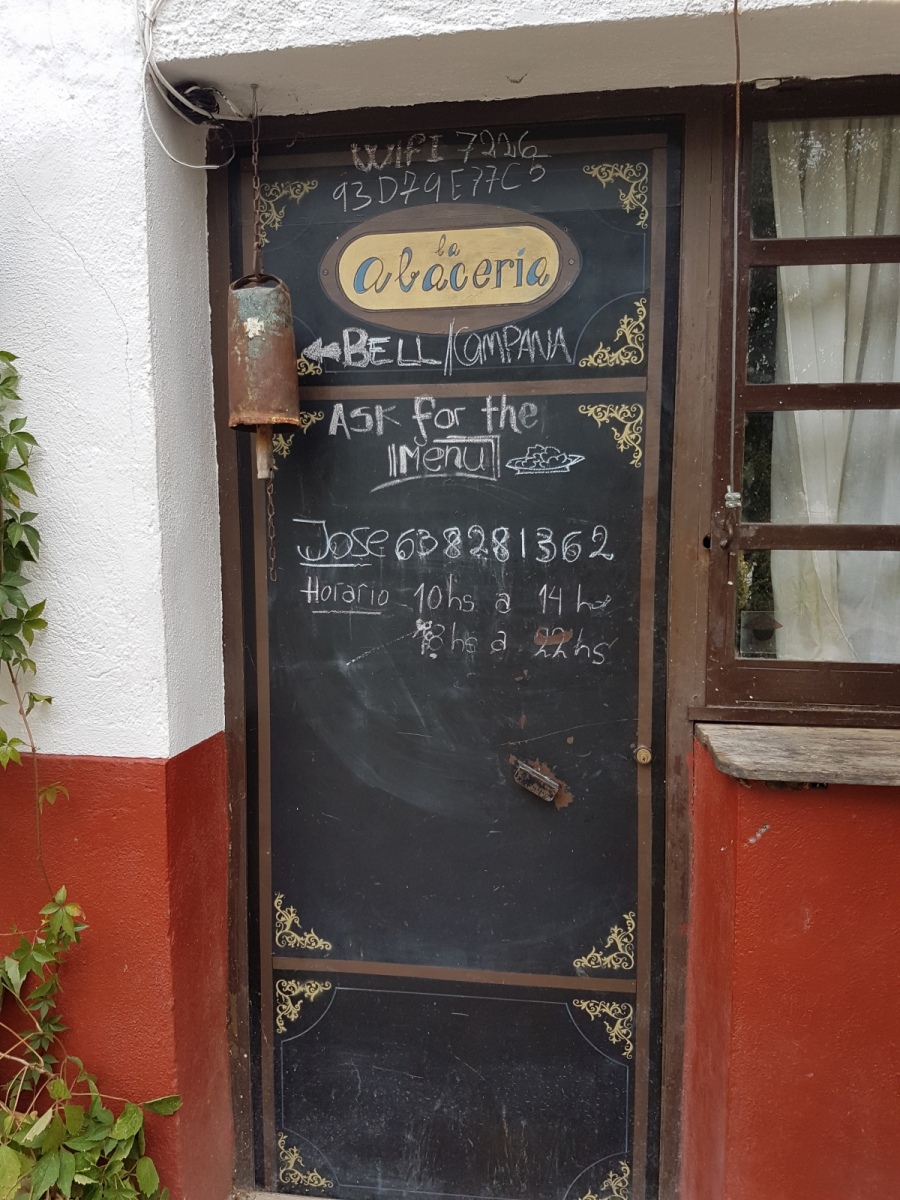 WIFI 7226
93D79E77C5
la
abacería
BELL/COMPANA
ASK for the
Menu
Jose 638281362
Horario 10hs a 14hs
18hs a 22hs